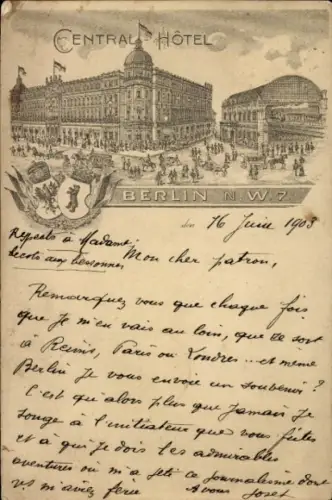 CENTRAL-HÔTEL
BERLIN N.W.7.
den 16 Juin 1903
Respects à Madame,
bécots aux
Mon cher patron,
Remarquez vous que chaque fois
que je m'en vais au loin, que ce soit
à Reims, Paris ou Londres... et même
Berlin je vous envoie un souvenir?
C'est qu'alors plus que jamais je
songe à l'initiateur que vous fûtes
et à qui je dois les admirables
aventures où m'a jeté ce journalisme dont
vs m'aviez